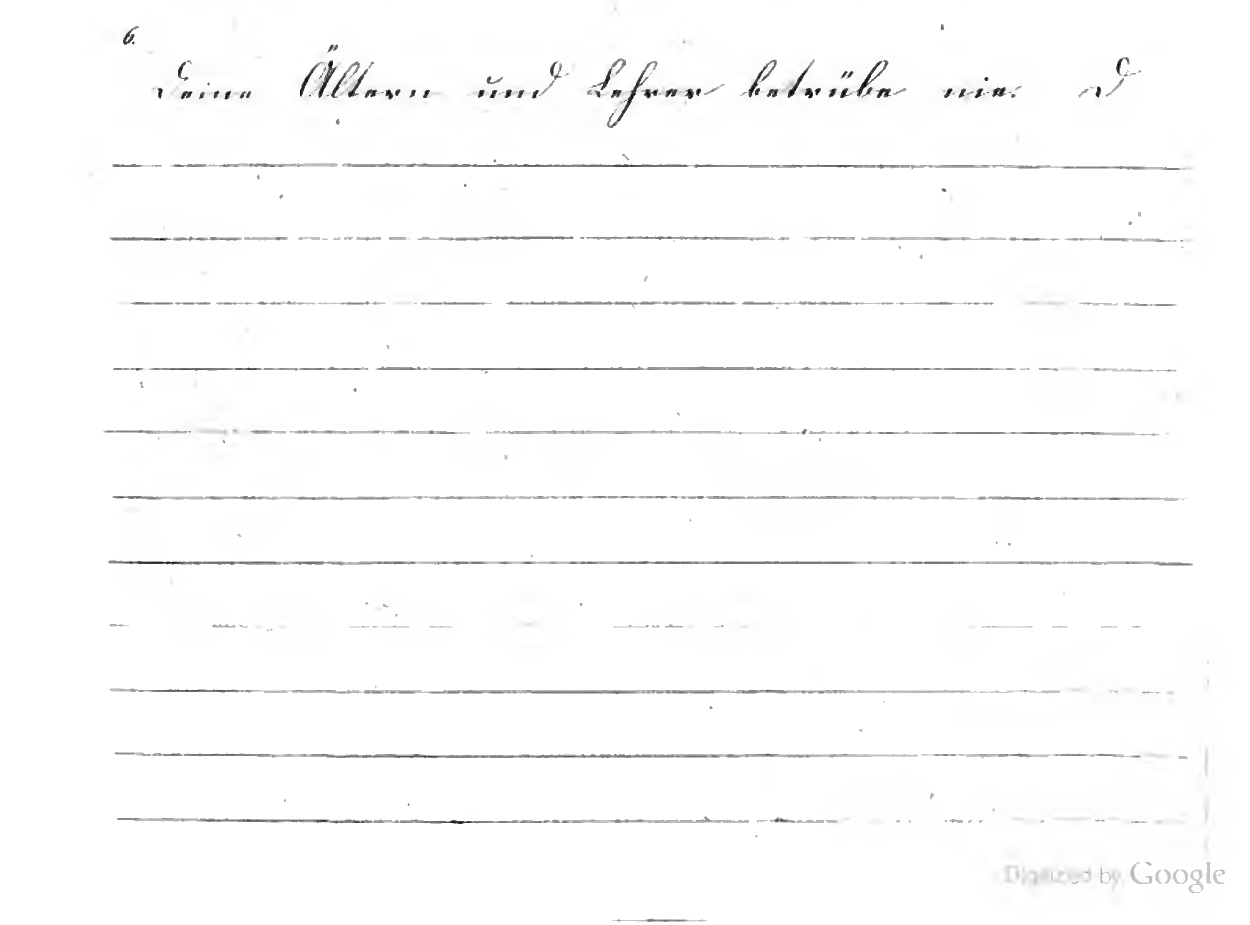 6.
Deine Ältern und Lehrer betrübe nie. D
Digitized by Google